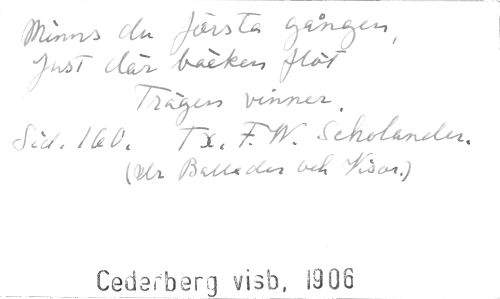 Minns du första gången,
Just där bäcken flöt
Trägen vinner.
Sid. 160. Tx. F. W. Scholander.
(Ur Ballader och Visor.)
Cederberg visb, 1906